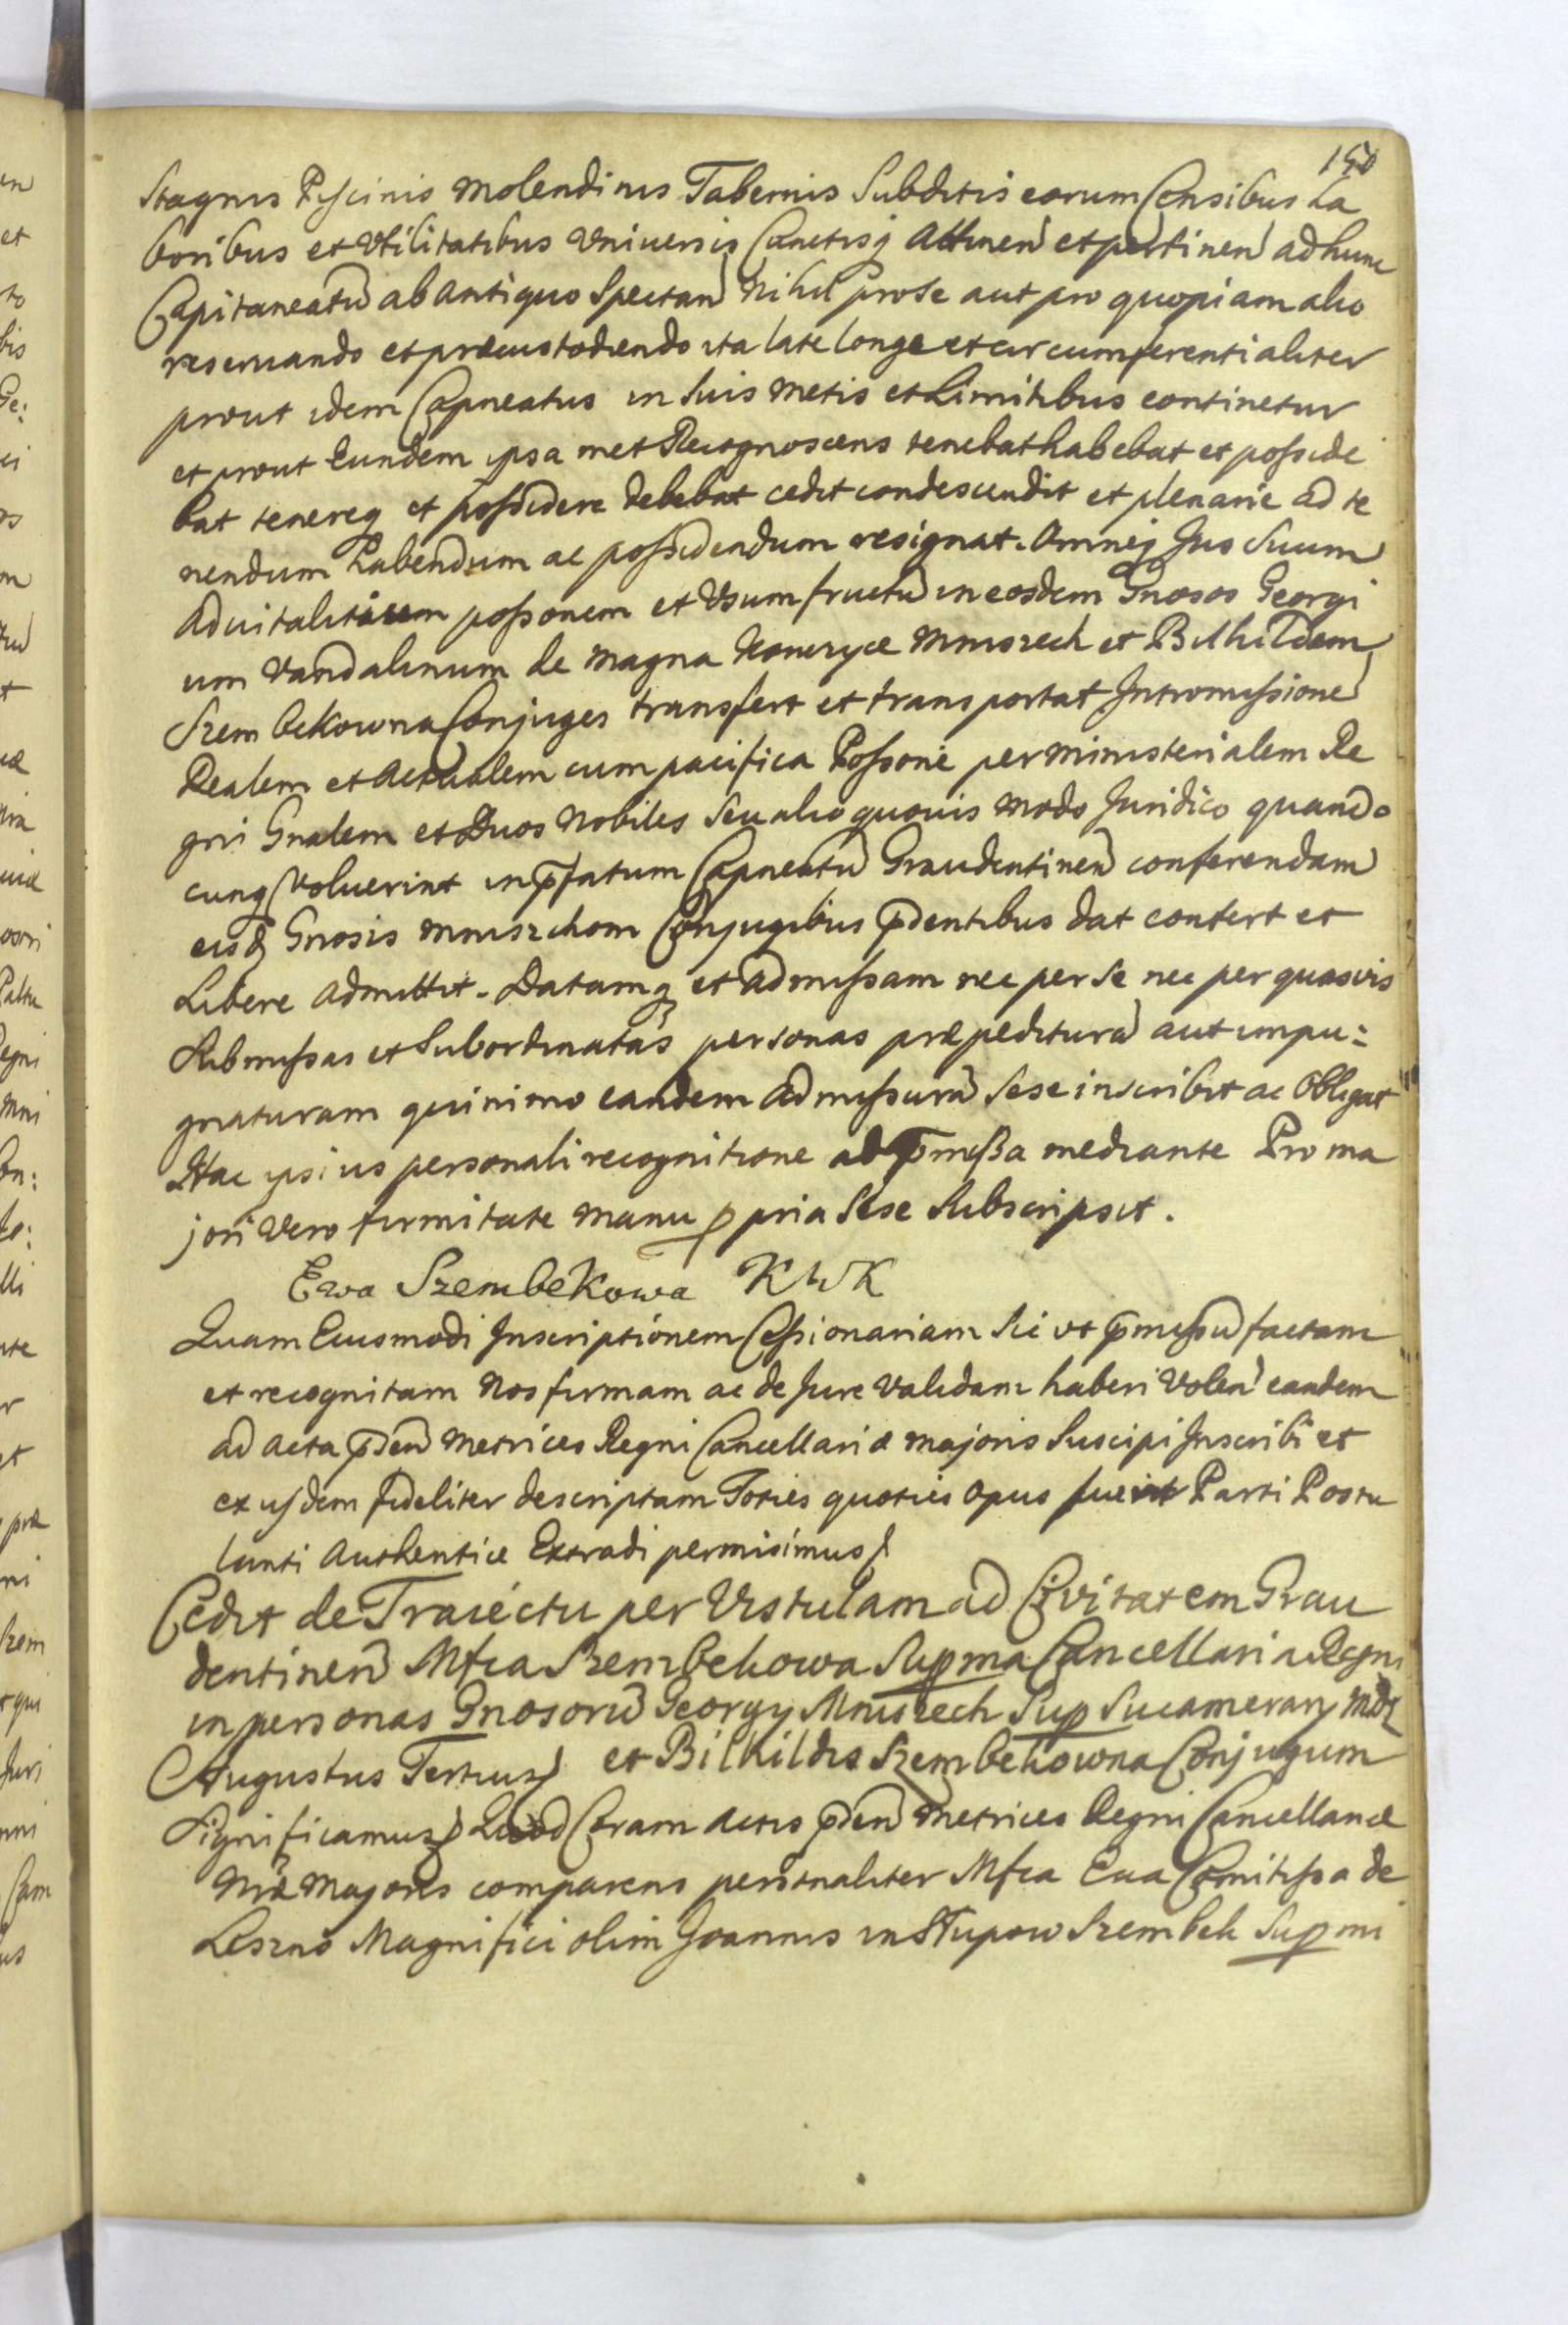 150
Stagnis Piscinis Molendinis Tabernis Subditis eorum Censibus La
boribus et Vtilitatibus Vniuersis Cunctisq Attinen et pertinen ad hunc
Capitaneatu ab antiquo Spectan Nihil pro se aut pro quopiam alio
reseruando et præcustodiendo ita late longe et circumferentialiter
prout idem Capneatus in Suis Metis et Limitibus continetur
et prout Eundem ipsa met Recognoscens tenebat habebat et posside
bat tenereq et possidere debebat cedit condescendit et plenarie ad te
nendum habendum ac possidendum resignat. Omneq Jus Suum
aduitalitium possonem et Vsumfructu in eosdem Gnosos Georgi
um Vandalinum de Magna Konczyce Mniszech et Bilhildem
Szembekowna Conjuges transfert et transportat Intromissione
Realem et Actualem cum pacifica Possone per Ministerialem Re
gni Gnalem et Duos Nobiles Seu alio quouis modo Juridico quando
cunq Voluerint in pfatum Capneatu Graudentinen conferendam
eisd Gnosis Mniszchom Conjugibus pdentibus dat confert et
Libere admittit. Datamq et admissam nec per Se nec per quasvis
Submissas et Subordinatas personas præpeditura aut impu:
gnaturam quinimo eandem admissura Sese inscribit ac Obligat
Hac ipsius personali recognitione ad pmissa mediante Pro ma
jori Vero firmitate manu ppria Sese Subscripsit.
Ewa Szembekowa KWK
Quam Eiusmodi Inscriptionem Cessionariam Sic vt pmissu factam
et recognitam Nos firmam ac de Jure Validam haberi Volen eandem
ad acta pden Metrices Regni Cancellariæ majoris Suscipi Inscribi et
ex ijsdem fideliter descriptam Toties quoties opus fuerit Parti Postu
lanti Authentice Extradi permisimus
Cedit de Traiectu per Vistulam ad Civitatem Grau
dentinen Mfca Szembekowa Supma Cancellaria Regni
in personas Gnosoru Georgy Mniszech Sup Sucamerary MDL
Augustus Tertius et Bilhildis Szembekowna Conjugum
Significamus Quod Coram Actis pden Metrices Regni Cancellariæ
Nræ Majoris comparens personaliter Mfca Eua Comitissa de
Leszno Magnifici olim Joannis in Słupow Szembek Supmi